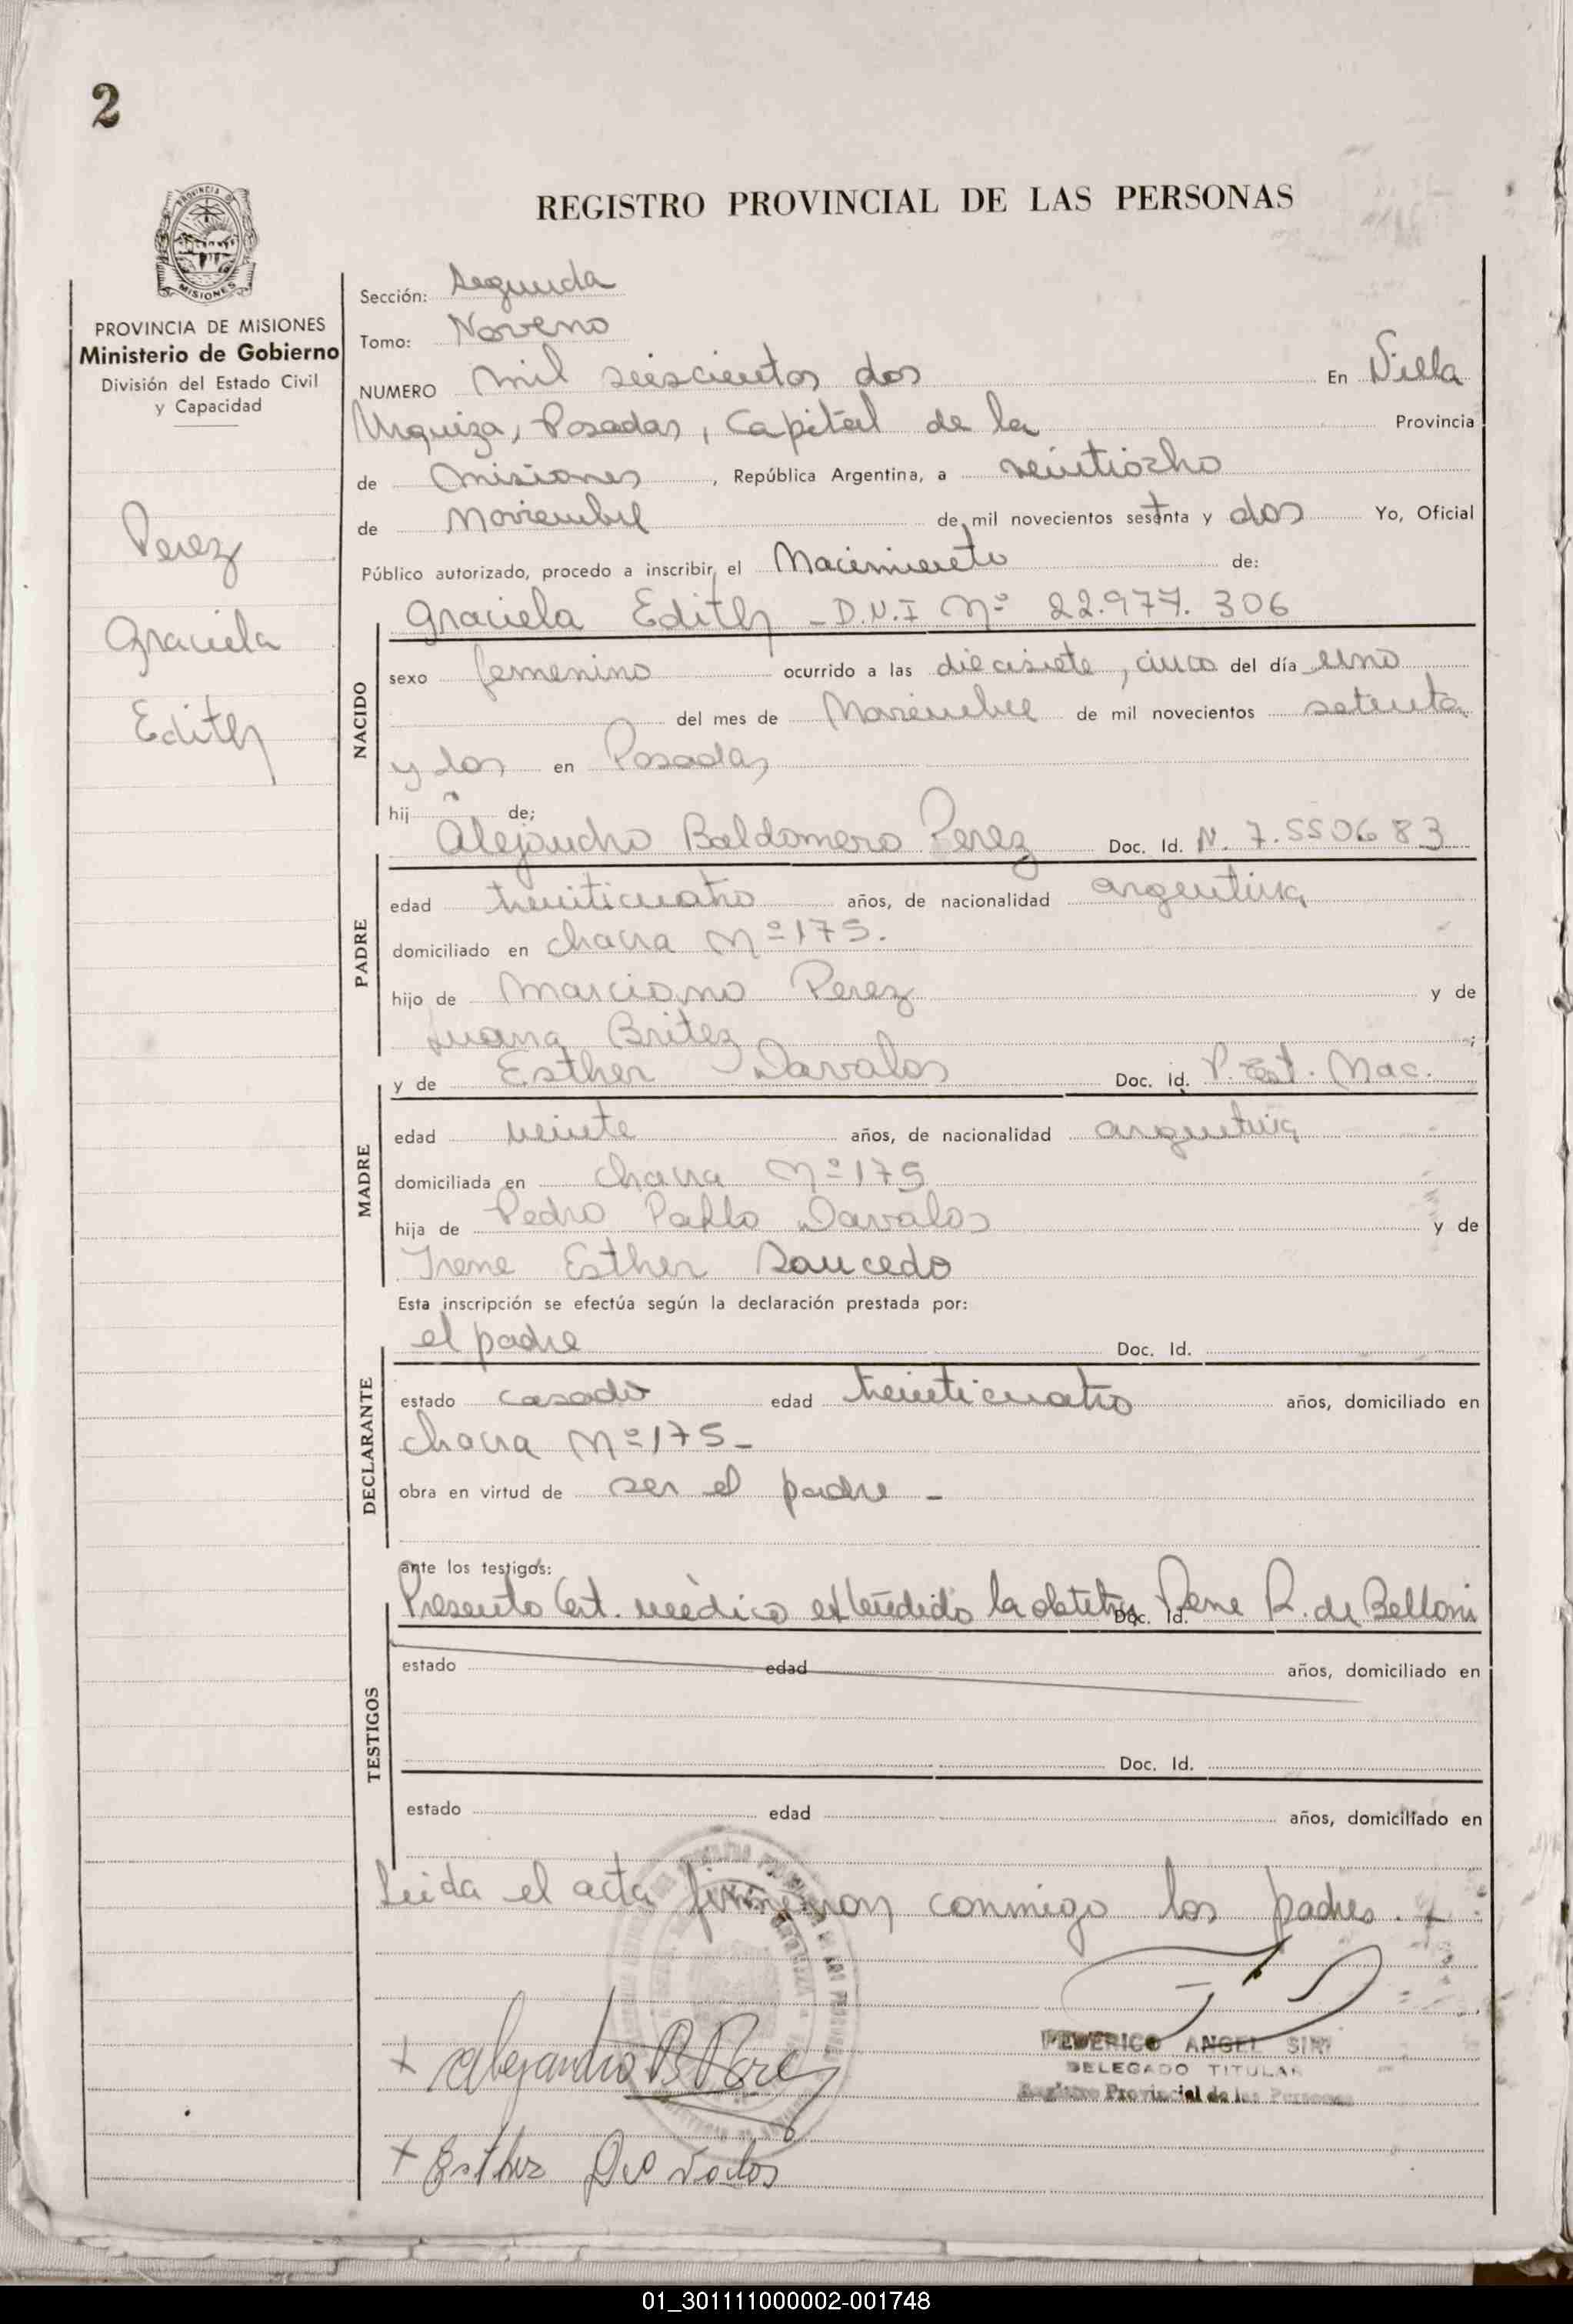 2
REGISTRO PROVINCIAL DE LAS PERSONAS
PROVINCIA
MISIONES
PROVINCIA DE MISIONES
Ministerio de Gobierno
División del Estado Civil
y Capacidad
Perez
Graciela
Edith
Sección: Segunda
Tomo: Noveno
NUMERO mil seiscientos dos En Villa
Urquiza, Posadas, Capital de la Provincia
de Misiones, República Argentina, a veintiocho
de Noviembre de mil novecientos setenta y dos Yo, Oficial
Público autorizado, procedo a inscribir el Nacimiento de:
Graciela Edith - D.N.I Nº 22.977.306
NACIDO
sexo femenino ocurrido a las diecisiete, cinco del día uno
del mes de Noviembre de mil novecientos setenta
y dos en Posadas
hija de;
Alejandro Baldomero Perez Doc. Id. N. 7.550683
PADRE
edad treinticuatro años, de nacionalidad argentina
domiciliado en chacra Nº 175.
hijo de Marciano Perez y de
Juana Britez;
y de Esther Davalos Doc. Id. Nac.
MADRE
edad veinte años, de nacionalidad argentina
domiciliada en chacra Nº 175
hija de Pedro Pablo Davalos y de
Irene Esther Saucedo
Esta inscripción se efectúa según la declaración prestada por:
el padre Doc. Id.
DECLARANTE
estado casado edad treinticuatro años, domiciliado en
chacra Nº 175-
obra en virtud de ser el padre -
ante los testigos:
Presento Cert. médico extendido la obstetra Irene R. de Belloni
Doc. Id.
TESTIGOS
estado edad años, domiciliado en
Doc. Id.
estado edad años, domiciliado en
Leida el acta firmaron conmigo los padres. -
+ Alejandro B Perez
FEDERICO ANGEL SIRI
DELEGADO TITULAR
Registro Provincial de las Personas
+ Esther Davalos
01_301111000002-001748